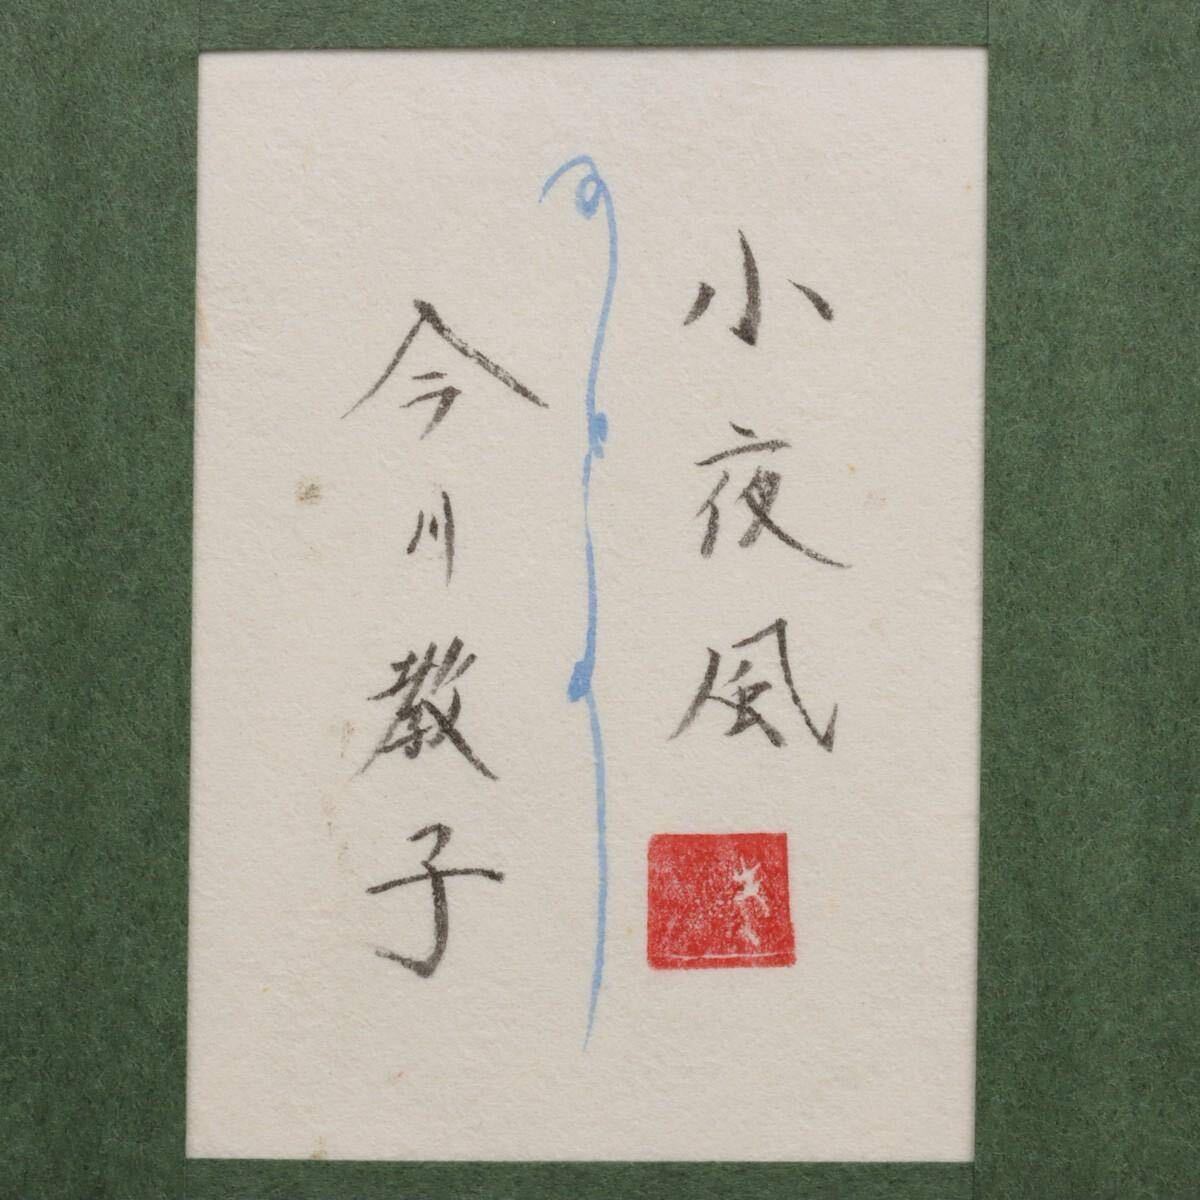 小夜風
今川教子